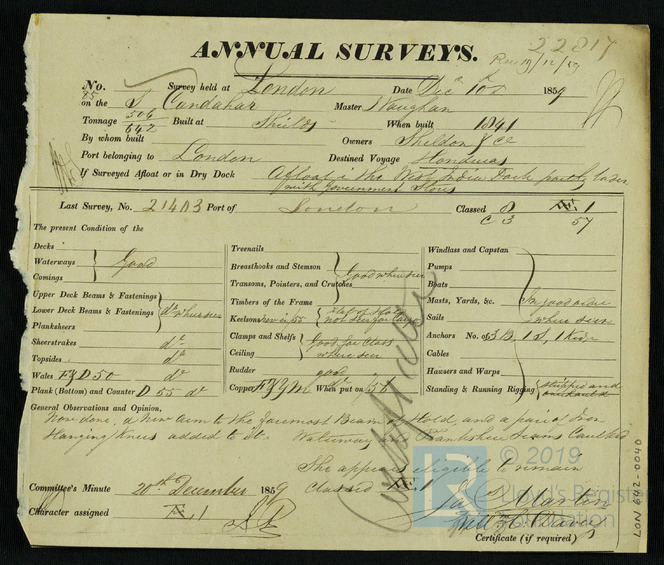 22817
ANNUAL SURVEYS.
Rec 19/12/59
No. 85 Survey held at London Date Decr 10th 1859
on the S Candahar Master Vaughan
Tonnage 506 642 Built at Shields When built 1841
By whom built Owners Sheldon & Co
Port belonging to London Destined Voyage Honduras
If Surveyed Afloat or in Dry Dock Afloat in the West India Dock partly laden
with Government Stores
Last Survey, No. 21403 Port of London Classed 8 Æ.1
C 3 57
The present Condition of the
Decks
Waterways
Comings
Good
Upper Deck Beams & Fastenings
Lower Deck Beams & Fastenings
do where seen
Planksheers
Sheerstrakes do
Topsides do
Wales FYD 50 do
Plank (Bottom) and Counter D 55 do
Treenails
Breasthooks and Stemson
Transons, Pointers, and Crutches
Timbers of the Frame
Good where seen
Keelsons new in 55 not seen for Cargo
Clamps and Shelfs Good for Class
Ceiling where seen
Rudder good
Copper FYM When put on 56 do
Windlass and Capstan
Pumps
Boats
Masts, Yards, &c. In good order
Sails where seen
Anchors No. of 3 B, 1 S, 1 Kedge
Cables
Hawsers and Warps
Standing & Running Rigging stripped and overhauled
General Observations and Opinion,
Now done, a New arm to the foremost Beam of Hold, and a pair of Iron
Hanging Knees added to it. Waterway and Planksheer Seams Caulked
She appears eligible to remain
Classed Æ.1
Committee's Minute 20th December 1859
Character assigned Æ.1
Certificate (if required)
© 2019
Lloyd's Register
Foundation
LON 642-0040